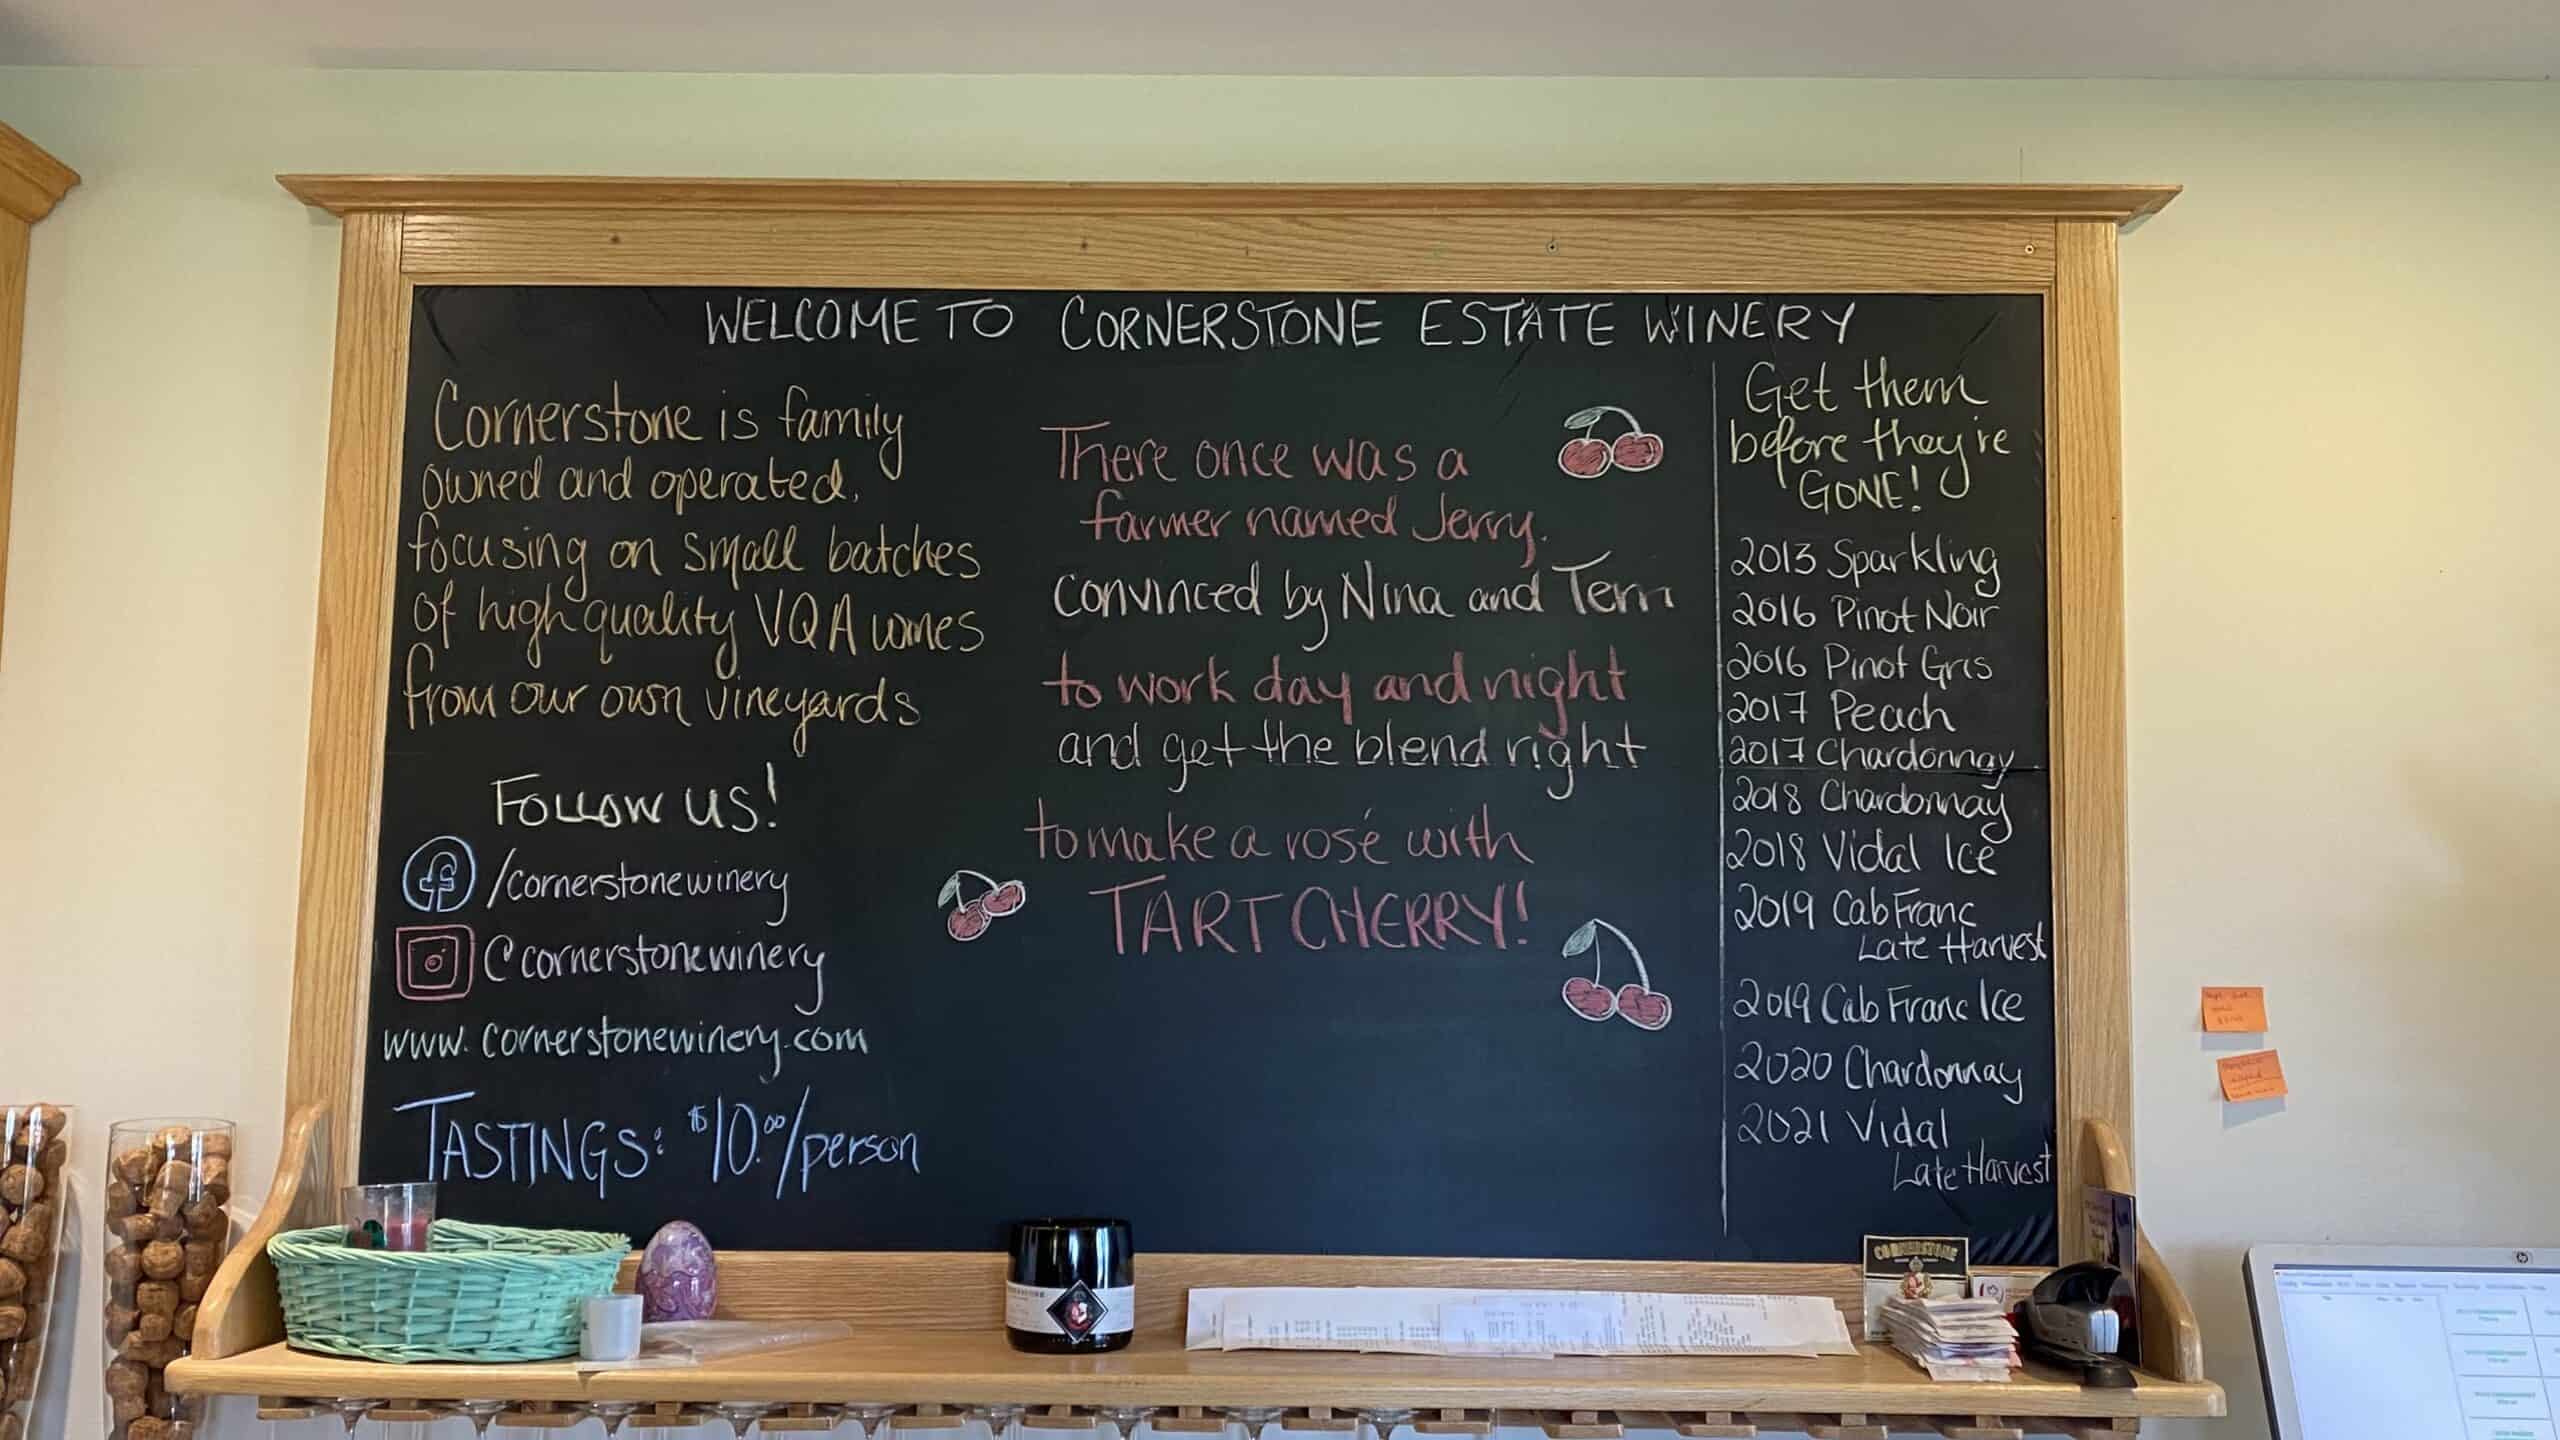 WELCOME TO CORNERSTONE ESTATE WINERY
Cornerstone is family
owned and operated,
focusing on small batches
of high quality VQA wines
from our own vineyards
FOLLOW US!
/cornerstonewinery
@cornerstonewinery
www.cornerstonewinery.com
TASTINGS: $10.00/person
There once was a
farmer named Jerry.
convinced by Nina and Terri
to work day and night
and get the blend right
to make a rosé with
TART CHERRY!
Get them
before they're
GONE!
2013 Sparkling
2016 Pinot Noir
2016 Pinot Gris
2017 Peach
2017 Chardonnay
2018 Chardonnay
2018 Vidal Ice
2019 Cab Franc
Late Harvest
2019 Cab Franc Ice
2020 Chardonnay
2021 Vidal
Late Harvest
CORNERSTONE
hp